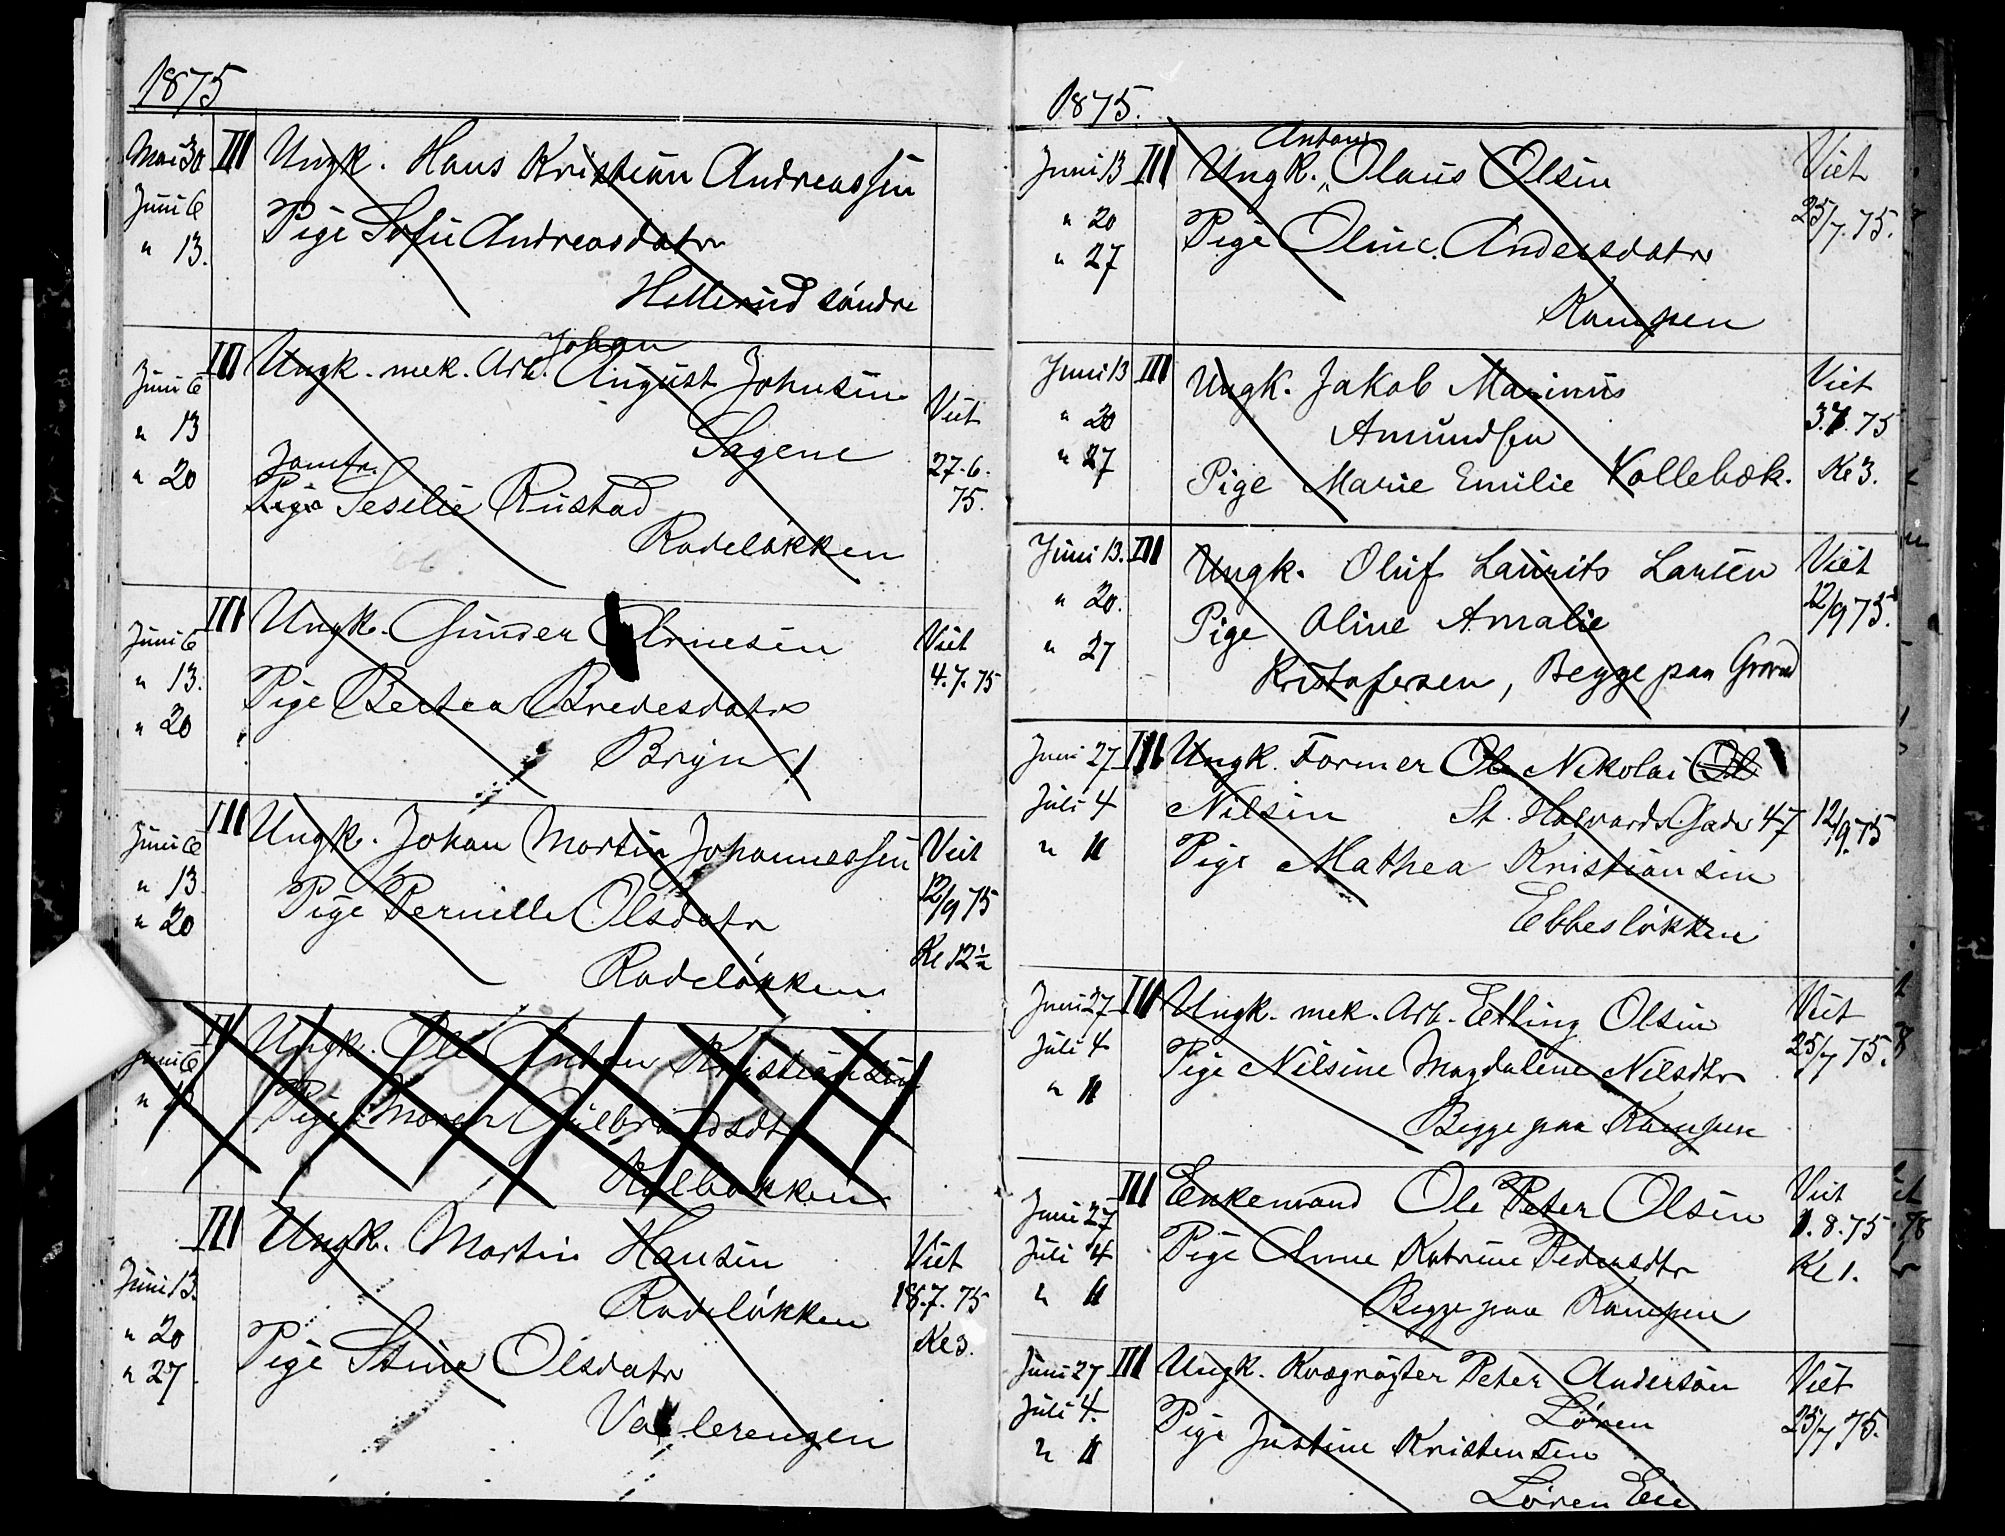 1875
Mai 30 III Ungk. Hans Kristian Andreassen
Juni 6 Pige Sofie Andreasdatr
" 13. Hellerud söndre
Johan
Juni 6 III Ungk. mek. Arb. August Johnsen
" 13 Sagene Viet
Jomfr. 27.6.
" 20 Pige Sesilie Rustad 75.
Rodeløkken
Juni 6 III Ungk. Gunder Arnesen Viet
" 13. Pige Bertea Bredesdatr 4.7.75
" 20 Bryn
Juni 6 III Ungk. Johan Martin Johannessen Viet
" 13. Pige Pernille Olsdatr 12/9 75
" 20 Rodeløkken Kl 12½
Juni 6 II Ungk. Ole Anton Kristiansen
" Pige Maren Gulbrandsdtr
Kalbakken
III Ungk. Martin Hansen Viet
Juni 13. Rodeløkken 18.7.75
" 20 Kl 3.
" 27 Pige Stine Olsdatr
Valerengen
1875.
Anton
Juni 13 III Ungk. „ Olaus Olsen Viet
" 20 Pige Oline Andersdatr 25/7.75.
" 27 Kampen
Juni 13 III Ungk. Jakob Marinus Viet
" 20 Amundsen 3.7.75
" 27 Pige Marie Emilie Kollebæk. Kl 3.
Juni 13. III Ungk. Oluf Laurits Larsen Viet
" 20. Pige Oline Amalie 12/9 75.
" 27 Kristofersen, Begge paa Grorud
Juni 27 III Ungk. Former Ole Nikolai Ol
Juli 4 Nilsen St. Halvards Gade 47 12/9.75
" 11 Pige Mathea Kristiansen
Ebbesløkken
Juni 27 III Ungk. mek. Arb. Erling Olsen Viet
Juli 4 Pige Nilsine Magdalene Nilsdtr 25/7 75.
" 11 Begge paa Kampen
III Enkemand Ole Peter Olsen Viet
Juni 27 1.8.75
Juli 4 Pige Anne Katrine Pedersdtr Kl 1.
" 11 Begge paa Kampen
Juni 27 III Ungk. Kvægrøgter Peter Anderson Viet
Juli 4. Løren 25/7 75.
" 11 Pige Justine Kristensen
Løren Eie